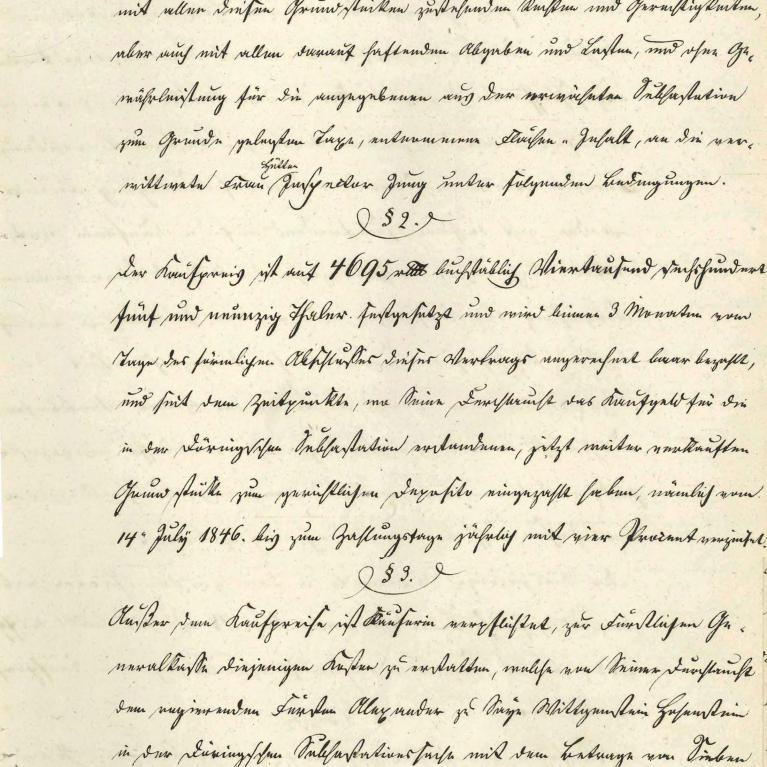 mit allen diesen Grundstücken zustehenden Rechten und Gerechtigkeiten,
aber auch mit allen darauf haftenden Abgaben und Lasten, und ohne Ge-
währleistung für die angegebenen aus der erwähnten Subhastation
zum Grunde gelegten Taxe, entnommene Flächen-Inhalt, an die ver-
wittwete Frau Hütten Inspector Jung unter folgenden Bedingungen.
§ 2.
Der Kaufpreis ist auf 4695 buchstäblich Viertausend sechshundert
fünf und neunzig Thaler festgesetzt und wird binnen 3 Monaten vom
Tage des förmlichen Abschlusses dieses Vertrags angerechnet baar bezahlt,
und seit dem Zeitpunkte, wo Seine Durchlaucht das Kaufgeld für die
in der Döringschen Subhastation erstandenen, jetzt weiter verkauften
Grundstücke zum gerichtlichen Deposito eingezahlt haben, nämlich vom
14t July 1846. bis zum Zahlungstage jährlich mit vier Prozent verzinset.
§ 3.
Außer dem Kaufpreise ist Käuferin verpflichtet, zur Fürstlichen Ge-
neralkasse diejenigen Kosten zu erstatten, welche von Seiner Durchlaucht
dem regierenden Fürsten Alexander zu Sayn Wittgenstein Hohenstein
in der Döringschen Subhastationssache mit dem Betrage von Sieben